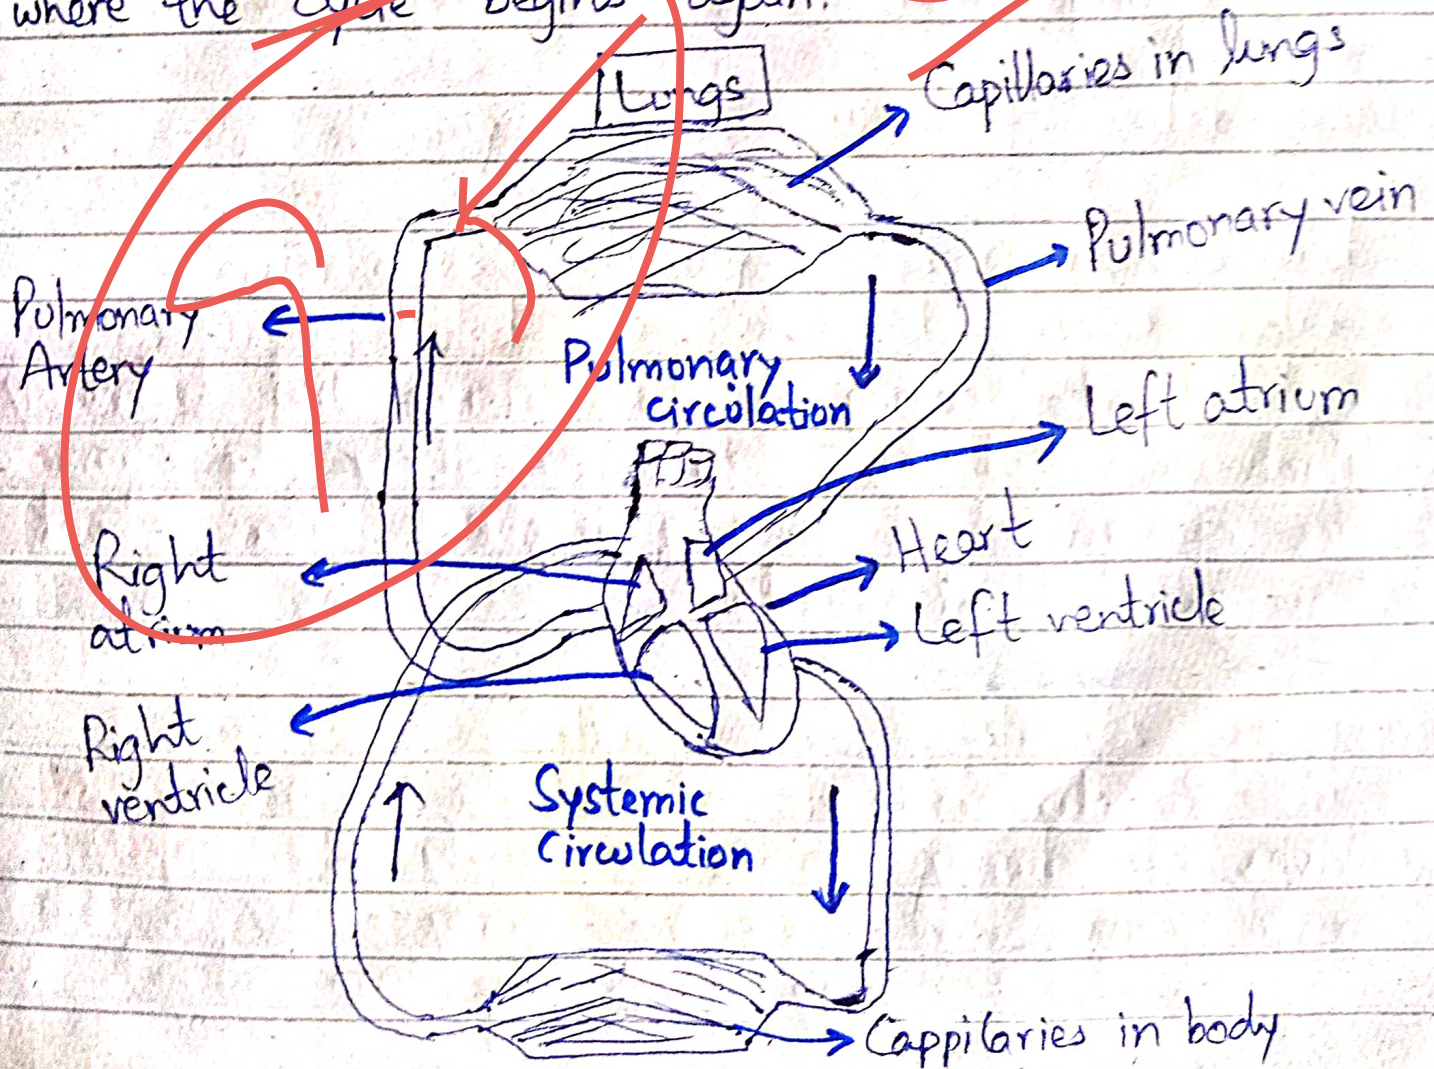 where the cycle begins again.
Lungs
Capillaries in lungs
Pulmonary vein
Pulmonary
Artery
Pulmonary
circulation
Left atrium
Heart
Right
atrium
Left ventricle
Right
ventricle
Systemic
Circulation
Cappilaries in body